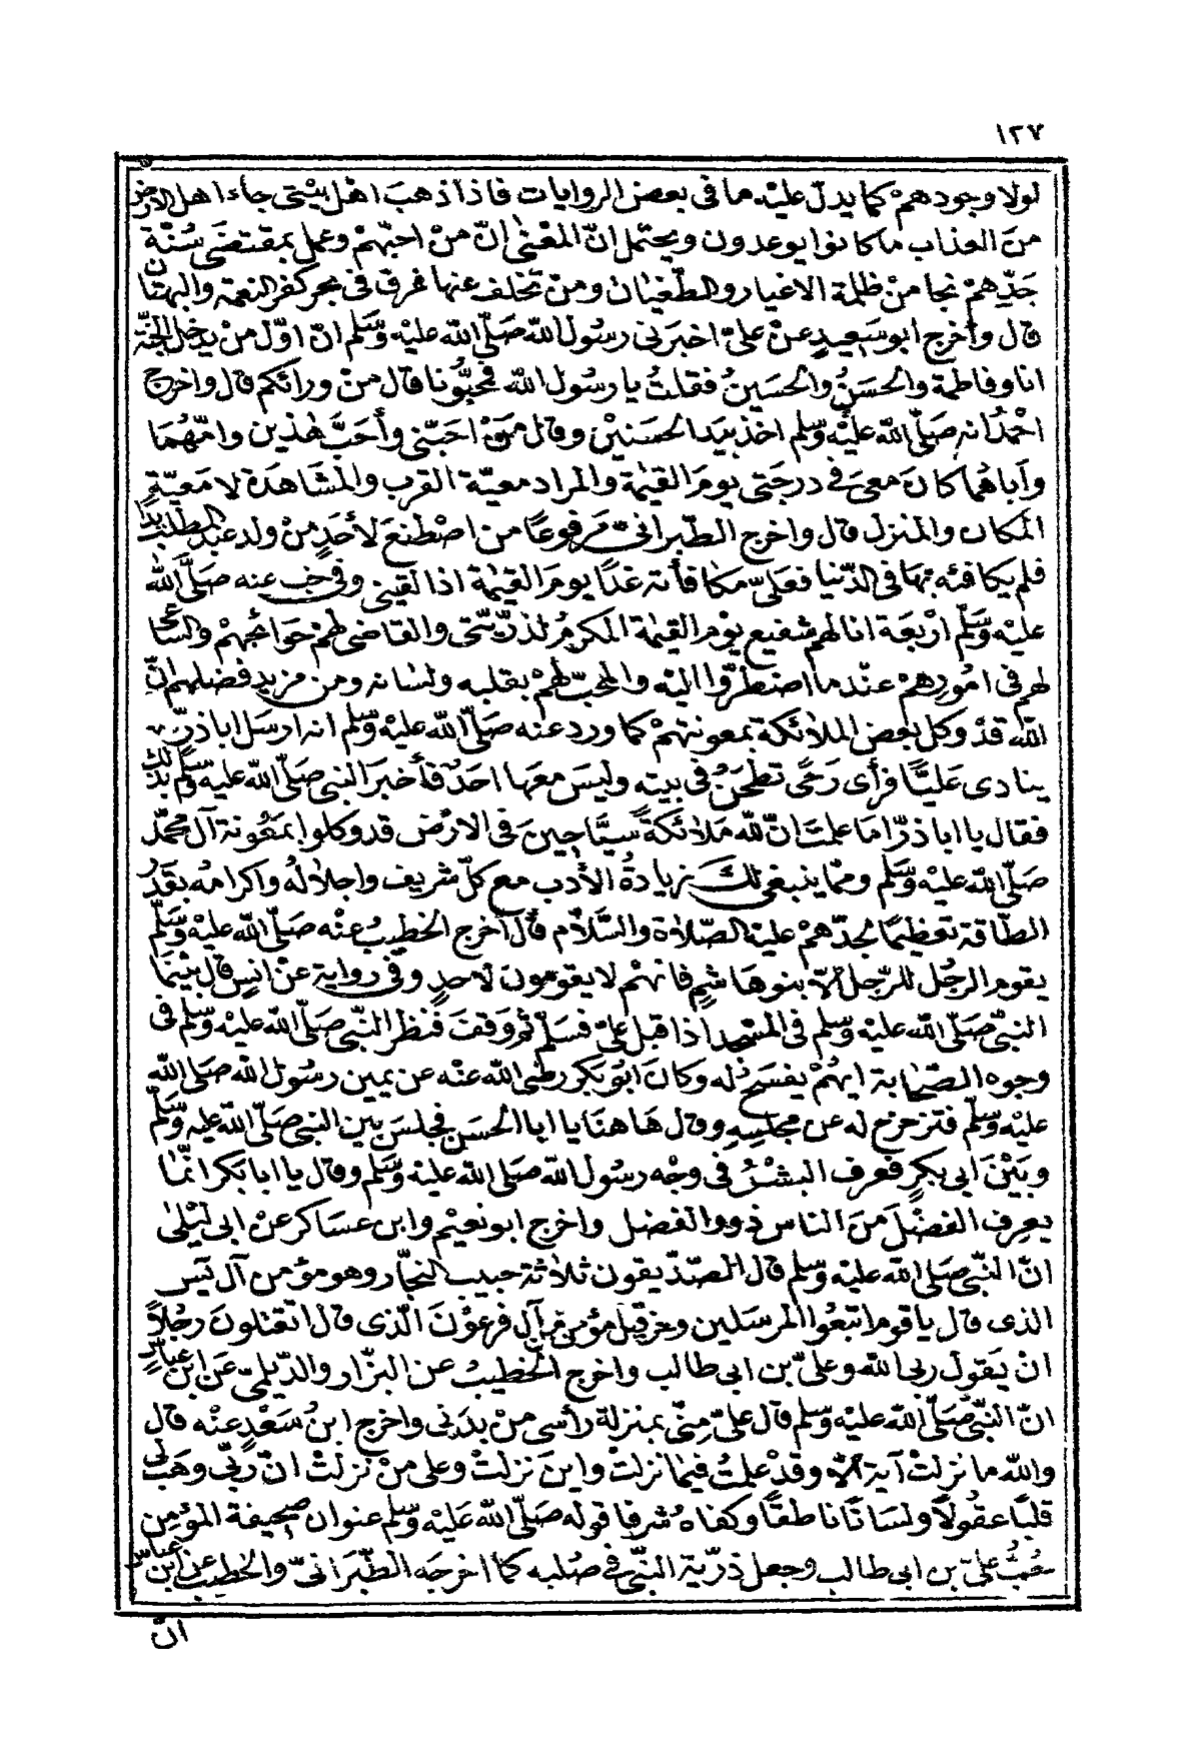 ١٢٧
لولا وجودهمْ كما يدلّ عليْه ما فى بعض الروايات فاذا ذهبَ اهْل بيْتى جاء اهل الارض
منَ العذاب ما كانوا يوعدون ويحتمل انّ المعْنى انّ منْ احبّهمْ وعمل بمقتضى سُنّة
جدّهمْ نجا منْ ظلمة الاغيار والطّغيان ومنْ تخلف عنها غرق فى بحر كفر النعمة والبهتان
قال وأخرج ابو سَعيدٍ عنْ علىّ اخبرنى رسُول اللّه صَلّى اللّه عليْه وَسَّلم انّ اوّل منْ يدخل الجنّة
انا وفاطمة والحسَنُ والحسَينُ فقلتُ يا رسُول اللّه فمحبُّونا قال منْ ورائكم قال واخرج
احْمدُ انه صَلّى اللّه عليْه وَسّلم اخذ بيَد الحسَنيْن وقال منْ احَبّنى وأحَبَّ هٰذين وامّهُمَا
وأباهُما كانَ معىَ فى درجَتى يومَ القيٰمة والمراد معيّة القرب والمشَاهدَة لا مَعيّة
المكان والمنزل قال واخرج الطّبرانىّ مَرفوعًا من اصْطنعَ لأحَدٍ منْ ولد عبْد المطّلب يدًا
فلم يكافئه بهَا فى الدّنيا فعَلىّ مكافأته غدًا يومَ القيٰمة اذا لقينى وفى خبر عنه صَلَّى اللّه
عليْه وَسَّلم ارْبعَة انا لهم شفيع يوْم القيٰمة المكرمُ لذرّيّتى والقاضى لهمْ حَوائجهمْ والسّاعى
لهم فى امُورهمْ عنْد ما اضطرّوا اليْه والمحبّ لهمْ بقلبه ولسَانه ومن مزيد فضلهم انّ
اللّه قدْ وكل بعض الملائكة بمعونتهمْ كما ورد عنه صَلّى اللّه عليْه وَسّلم انه ارسَل ابا ذرّ
ينادى عَليًّا فرأى رَحًى تطحَنُ فى بيته وليسَ معهَا احَدٌ فأخبرَ النبى صَلّى اللّه عليه وَسّلم بذلك
فقال يا ابا ذرّ امَا علمتَ انّ للّه مَلائكةً سيَّاحينَ فى الارْض قد وكلوا بمَعُونة آل محمّد
صَلّى اللّه عليْه وَسّلم وممّا ينبغى لكَ زيادةُ الأدب مع كلّ شريف واجلالهُ واكرامهُ بقدْر
الطّاقة تعْظيمًا لجدّهمْ عليْه الصّلاة والسَّلام قال اخرج الخطيبُ عنْه صَلّى اللّه عليْه وَسَّلم
يقوم الرجُل للرّجل الّا بنو هاشمٍ فانهمْ لا يقومون لاحدٍ وفى رواية عنْ انسٍ قال بيْنما
النبىّ صَلّى اللّه عليْه وسَلم فى المسْجد اذ اقبل علىّ فسَلّم ثم وَقفَ فنظر النّبى صَلّى اللّه عليْه وَسّلم فى
وجوه الصّحَابة ايهُمْ يفسَحُ له وكانَ ابُو بَكر رضى اللّه عنْه عن يمين رسُول اللّه صَلى اللّه
عليْه وَسّلم فتزحزح له عن مجلسِهِ وقال هَاهنَا يا ابا الحسَن فجلسَ بيْن النبىّ صَلّى اللّه عليه وسّلم
وبَيْنَ ابى بكرٍ فعرف البشْرُ فى وجْه رسُول اللّه صَلى اللّه عليْه وسَّلم وقال يا ابا بَكر انّما
يعرِف الفضْلَ منَ الناس ذوو الفضل واخرج ابو نعيْم وابن عسَاكر عنْ ابى ليْلىٰ
انّ النّبىّ صَلى اللّه عليْه وَسّلم قال الصّدّيقون ثلاثة حبيب النجّار وهو مؤمن آل يٓس
الذى قال يا قوم اتبعُوا المرسَلين وحزقيل مؤمن آل فرعَوْنَ الّذى قال اتقتلونَ رجُلاً
انْ يَقولَ ربى اللّه وعلىّ بن ابى طالب واخرج الخطيبُ عن البزّار والدّيلمىّ عَن ابن عبّاسٍ
انّ النّبىَّ صَلّى اللّه عليْه وسّلم قال علىّ منّى بمنزلة رأسى منْ بدَنى واخرج ابنُ سَعْدٍ عنْه قال
واللّه ما نزلتْ آية الّا وقدْ علمتُ فيمَا نزلتْ واينَ نزلتْ وعلى منْ نزلتْ انّ ربّى وهَبَ لى
قلبًا عقُولاً ولسَانًا ناطقًا وكفاهُ شرفا قوله صَلّى اللّه عَليْه وَسَّلم عنوان صحيفة المؤمن
حُبُّ علىّ بن ابى طالب وجعل ذرّية النّبىّ فى صُلبه كما اخرجَه الطّبَرَانىّ والخطيبُ عن ابن عباسٍ
انّ